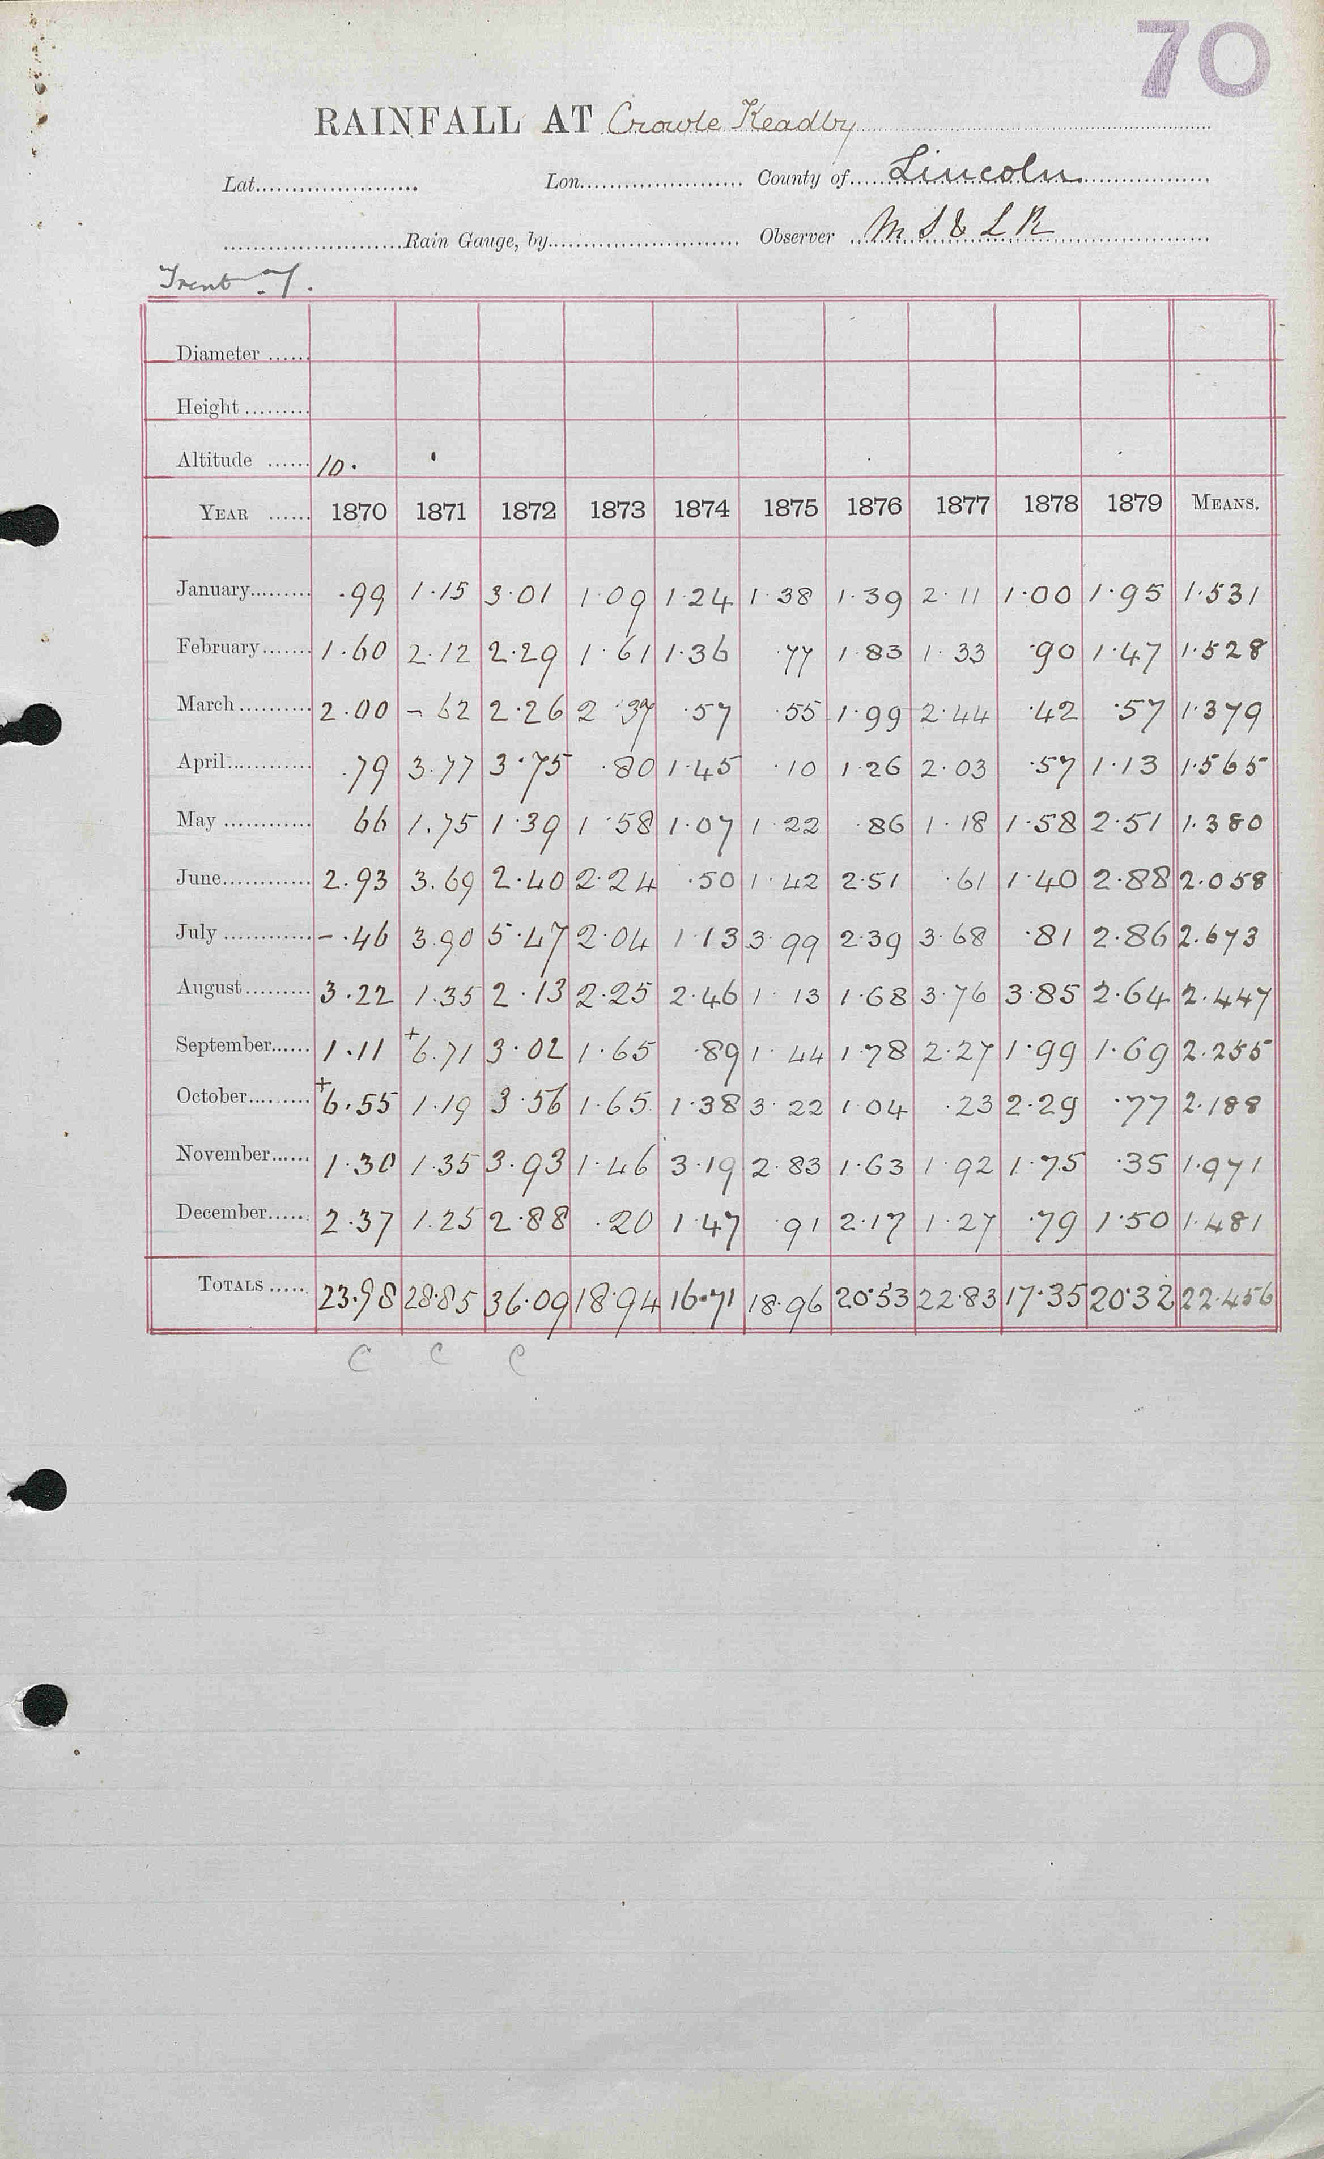 70
RAINFALL AT Crowle Keadby
Lat...................... Lon...................... County of Lincoln
........................Rain Gauge, by......................... Observer M S & L R
Trent 7.
Diameter ......
Height .........
Altitude ...... 10.
YEAR ...... 1870 1871 1872 1873 1874 1875 1876 1877 1878 1879 MEANS.
January......... .99 1.15 3.01 1.09 1.24 1.38 1.39 2.11 1.00 1.95 1.531
February....... 1.60 2.12 2.29 1.61 1.36 .77 1.83 1.33 .90 1.47 1.528
March.......... 2.00 - 62 2.26 2.37 .57 .55 1.99 2.44 .42 .57 1.379
April............ .79 3.77 3.75 .80 1.45 .10 1.26 2.03 .57 1.13 1.565
May ............ 66 1.75 1.39 1.58 1.07 1.22 .86 1.18 1.58 2.51 1.380
June............ 2.93 3.69 2.40 2.24 .50 1.42 2.51 .61 1.40 2.88 2.058
July ............ -.46 3.90 5.47 2.04 1.13 3.99 2.39 3.68 .81 2.86 2.673
August......... 3.22 1.35 2.13 2.25 2.46 1.13 1.68 3.76 3.85 2.64 2.447
September...... 1.11 +6.71 3.02 1.65 .89 1.44 1.78 2.27 1.99 1.69 2.255
October......... +6.55 1.19 3.56 1.65 1.38 3.22 1.04 .23 2.29 .77 2.188
November...... 1.30 1.35 3.93 1.46 3.19 2.83 1.63 1.92 1.75 .35 1.971
December...... 2.37 1.25 2.88 .20 1.47 .91 2.17 1.27 .79 1.50 1.481
TOTALS ..... 23.98 28.85 36.09 18.94 16.71 18.96 20.53 22.83 17.35 20.32 22.456
C C C